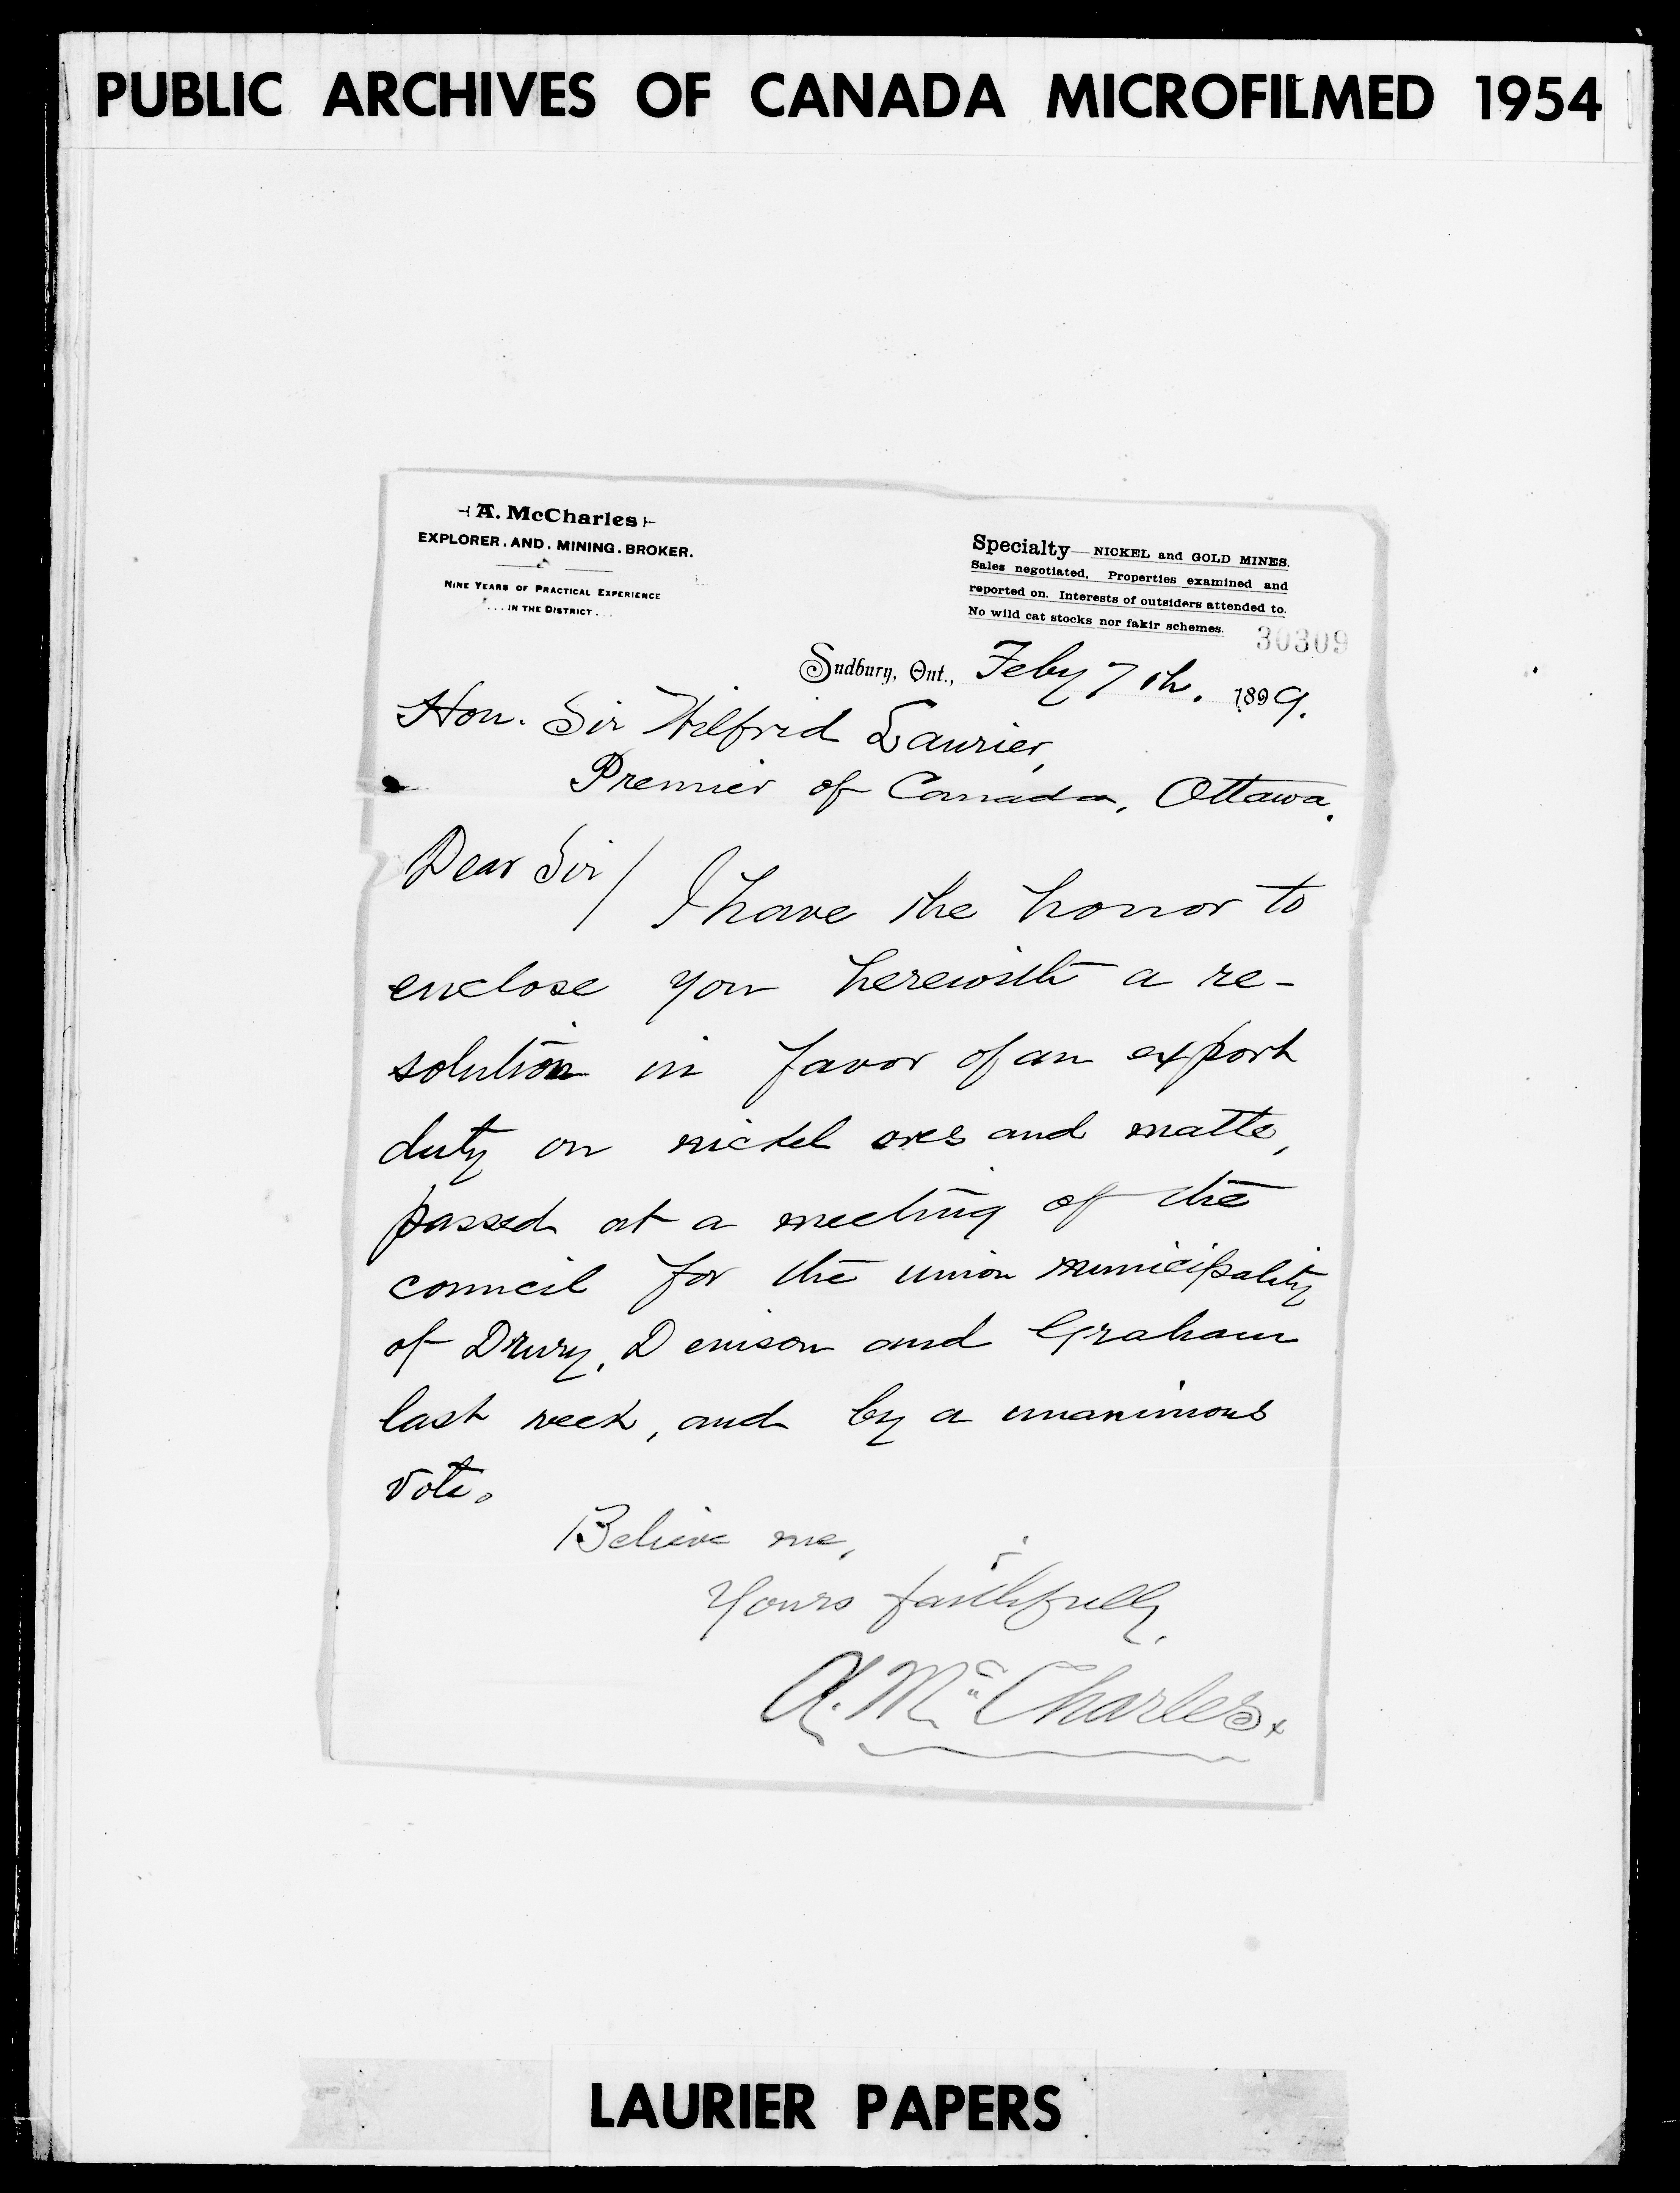 PUBLIC ARCHIVES OF CANADA MICROFILMED 1954
A. McCharles
EXPLORER. AND. MINING. BROKER.
NINE YEARS OF PRACTICAL EXPERIENCE
... IN THE DISTRICT ...
Specialty — NICKEL and GOLD MINES.
Sales negotiated. Properties examined and
reported on. Interests of outsiders attended to.
No wild cat stocks nor fakir schemes.
30309
Sudbury, Ont., Feby 7th. 1899.
Hon. Sir Wilfrid Laurier,
Premier of Canada, Ottawa.
Dear Sir/ I have the honor to
enclose you herewith a re-
solution in favor of an export
duty on nickel ores and matte,
passed at a meeting of the
council for the union municipality
of Drury, Denison and Graham
last week, and by a unanimous
vote.
Believe me,
Yours faithfully,
A. McCharles.
LAURIER PAPERS